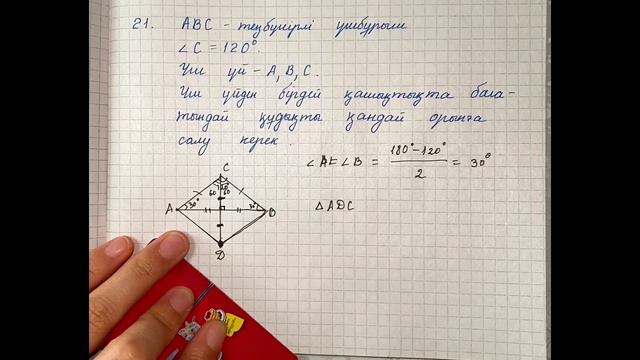 21. ABC - теңбүйірлі үшбұрыш
∠C = 120°.
Үш үй - A, B, C.
Үш үйден бірдей қашықтықта бола-
тындай құдықты қандай орынға
салу керек.
∠A = ∠B = (180° - 120°)/2 = 30°
△ADC
C
60 60
A 30° 30° B
D